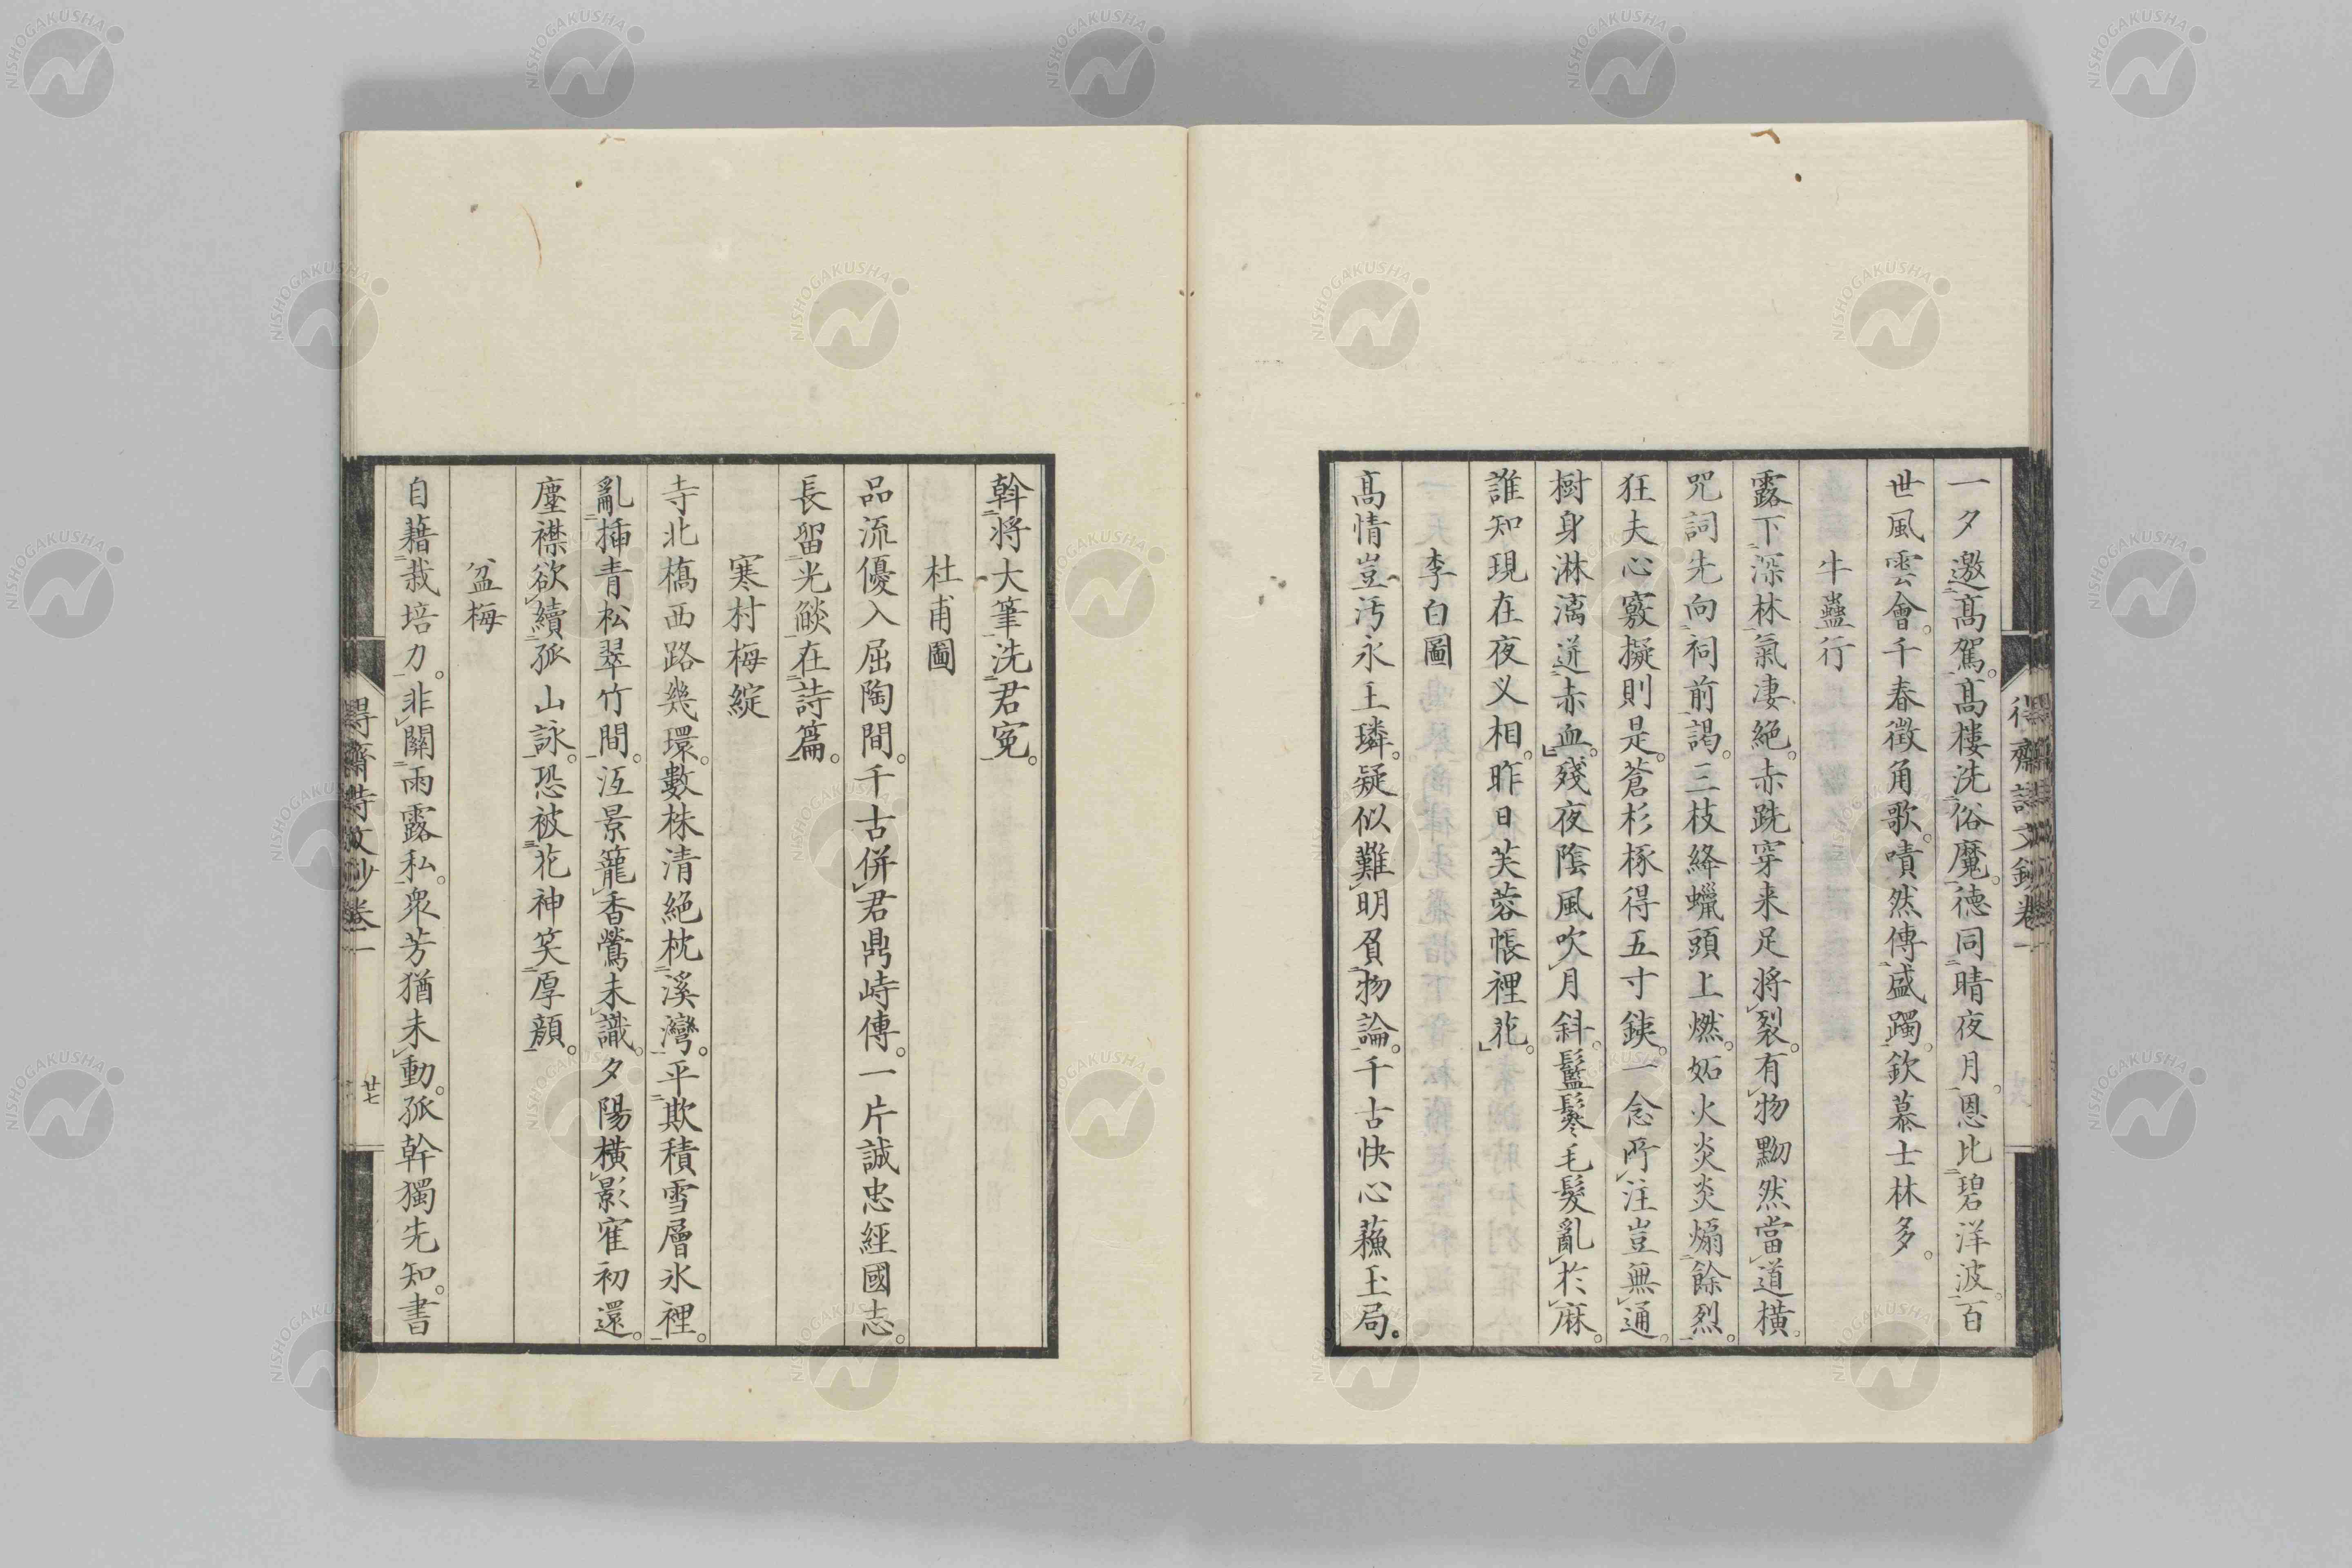 一夕邀髙駕。髙樓洗俗魔。德同晴夜月。恩比碧洋波。百
世風雲會。千春徴角歌。嘖然傳盛躅。欽慕士林多。
牛蠱行
露下深林氣凄絶。赤跣穿来足將裂。有物黝然當道橫。
咒詞先向祠前謁。三枝絳蠟頭上燃。妬火炎炎煽餘烈。
狂夫心竅擬則是。蒼杉椓得五寸銕。一念所注豈無通。
樹身淋漓迸赤血。殘夜陰風吹月斜。鬣鬖毛髮亂於麻。
誰知現在夜义相。昨日芙蓉帳裡花。
李白圖
髙情豈汚永王璘。疑似難明負物論。千古快心蘓玉局。
得齋詩文鈔卷一
斡將大筆洗君寃。
杜甫圖
品流優入屈陶間。千古併君鼎峙傳。一片誠忠經國志。
長留光燄在詩篇。
寒村梅綻
寺北橋西路幾環。數株清絶枕溪灣。平欺積雪層氷裡。
亂插青松翠竹間。沍景籠香鶯未識。夕陽橫影寉初還。
塵襟欲續孤山詠。恐被花神笑厚顔。
盆梅
自藉栽培力。非關雨露私。衆芳猶未動。孤幹獨先知。書
得齋詩文鈔卷一
廿七
NISHOGAKUSHA